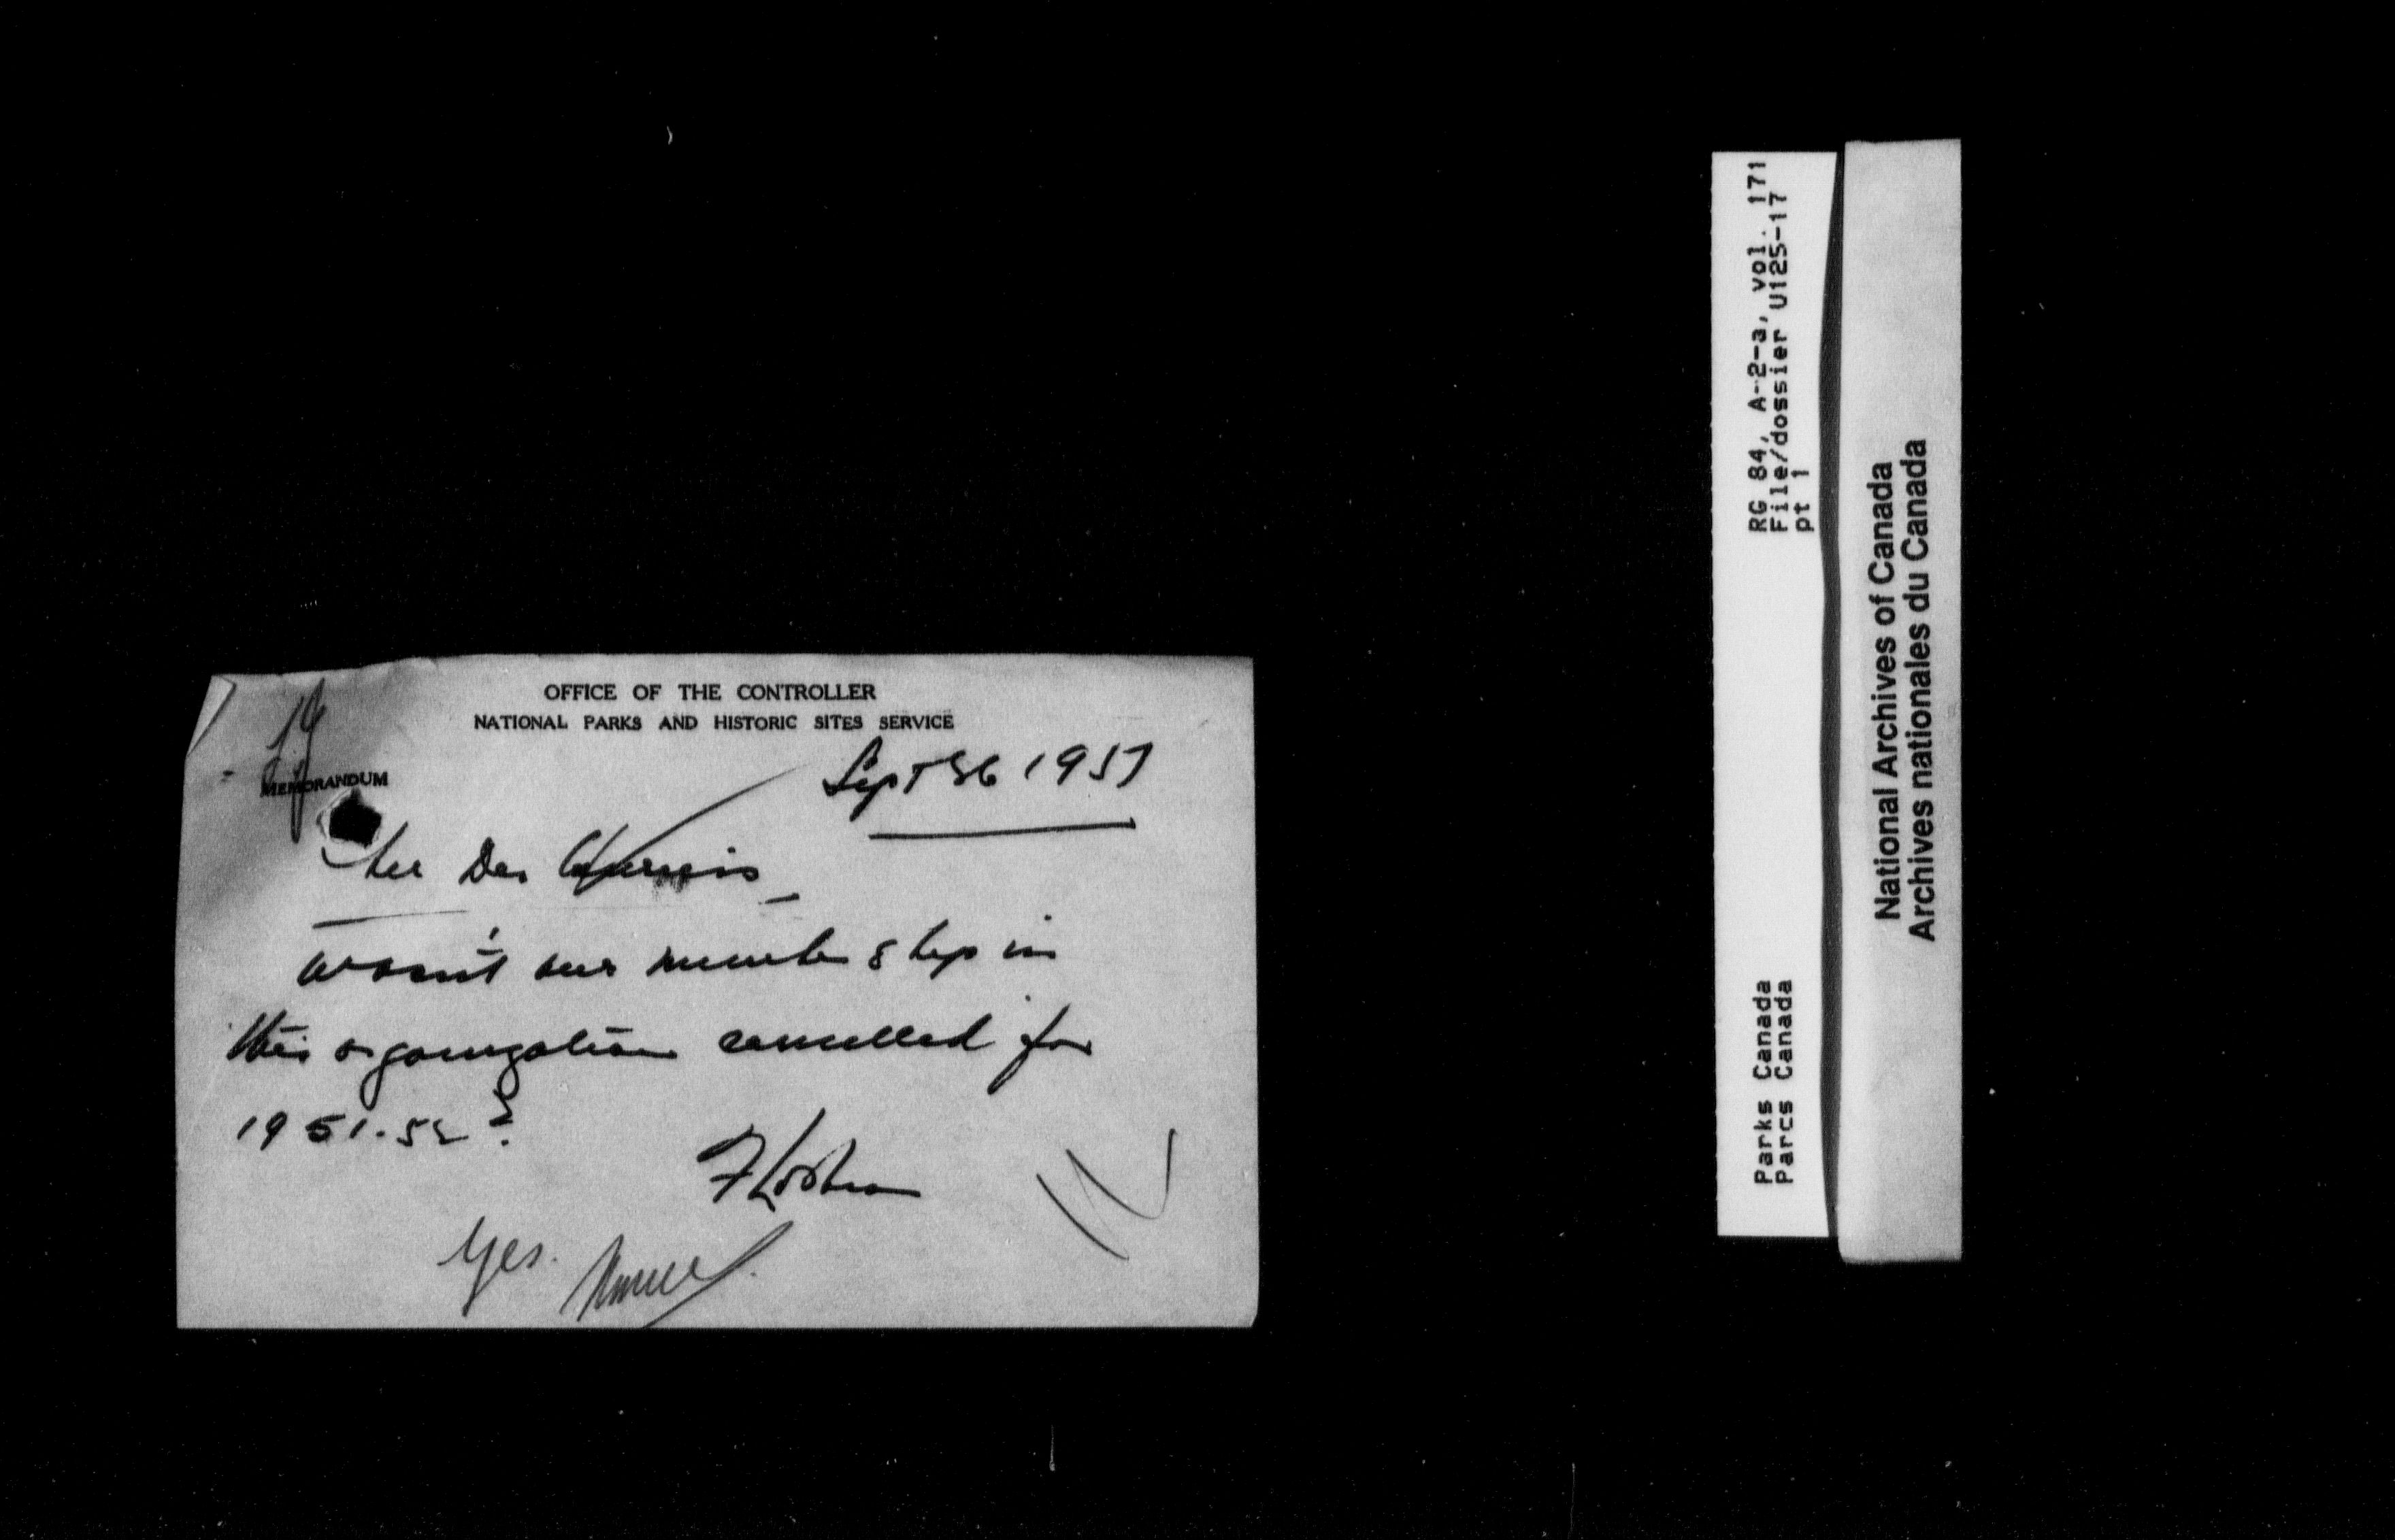 OFFICE OF THE CONTROLLER
NATIONAL PARKS AND HISTORIC SITES SERVICE
Sept 26 1951
MEMORANDUM
wasn't our membership in
this organization cancelled for
1951-52?
Yes.
RG 84, A-2-a, vol. 171
File/dossier U125-17
pt 1
Parks Canada
Parcs Canada
National Archives of Canada
Archives nationales du Canada